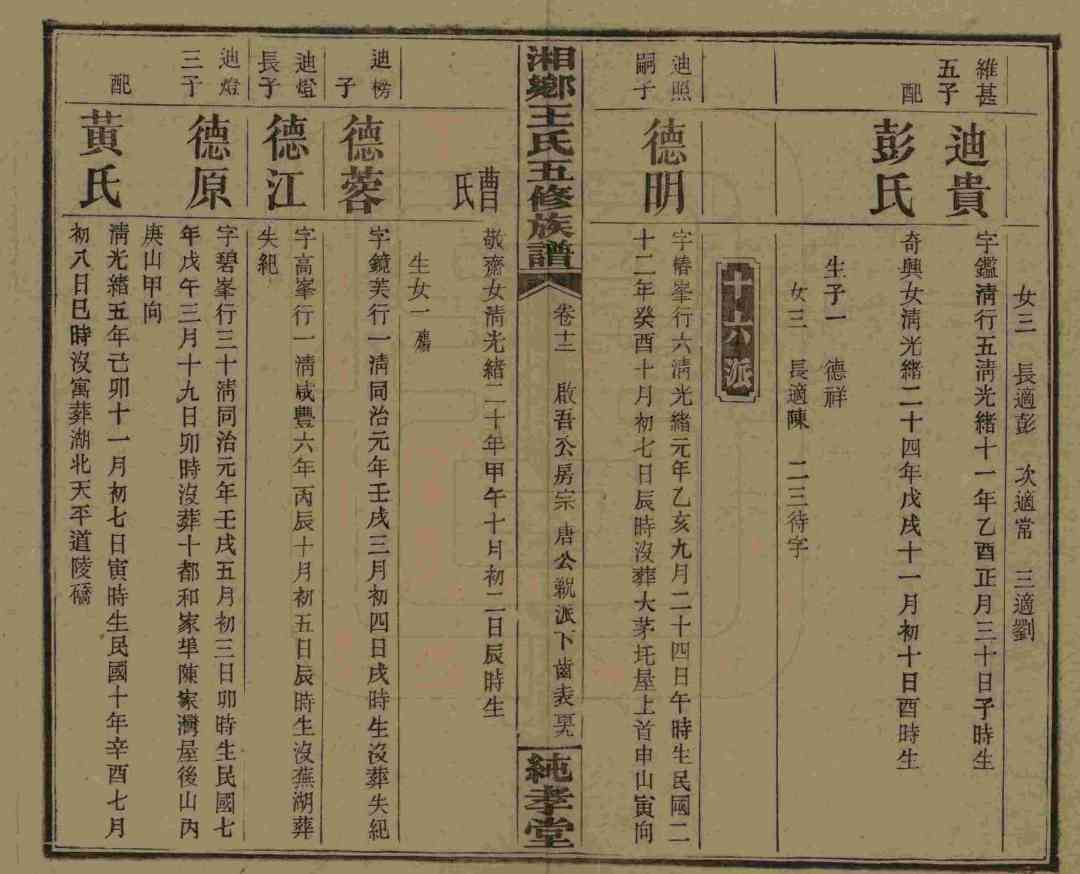 女三 長適彭 次適常 三適劉
維甚
五子
迪貴
字鑑淸行五淸光緒十一年乙酉正月三十日子時生
配
彭氏
奇興女淸光緒二十四年戊戌十一月初十日酉時生
生子一 德祥
女三 長適陳 二三待字
十六派
迪照
嗣子
德明
字椿峯行六淸光緒元年乙亥九月二十四日午時生民國二
十二年癸酉十月初七日辰時沒葬大茅坨屋上首申山寅向
湘鄉王氏五修族譜
卷十二 啟吾公房宗唐公派下齒表
純孝堂
曹氏
敬齋女淸光緒二十年甲午十月初二日辰時生
生女一 殤
迪榜
子
德蓉
字鏡芙行一淸同治元年壬戌三月初四日戌時生沒葬失紀
迪燈
長子
德江
字高峯行一淸咸豐六年丙辰十月初五日辰時生沒蕪湖葬
失紀
迪燈
三子
德原
字碧峯行三十淸同治元年壬戌五月初三日卯時生民國七
年戊午三月十九日卯時沒葬十都和家埠陳家灣屋後山丙
庚山甲向
配
黃氏
淸光緒五年己卯十一月初七日寅時生民國十年辛酉七月
初八日巳時沒寓葬湖北天平道陵礄